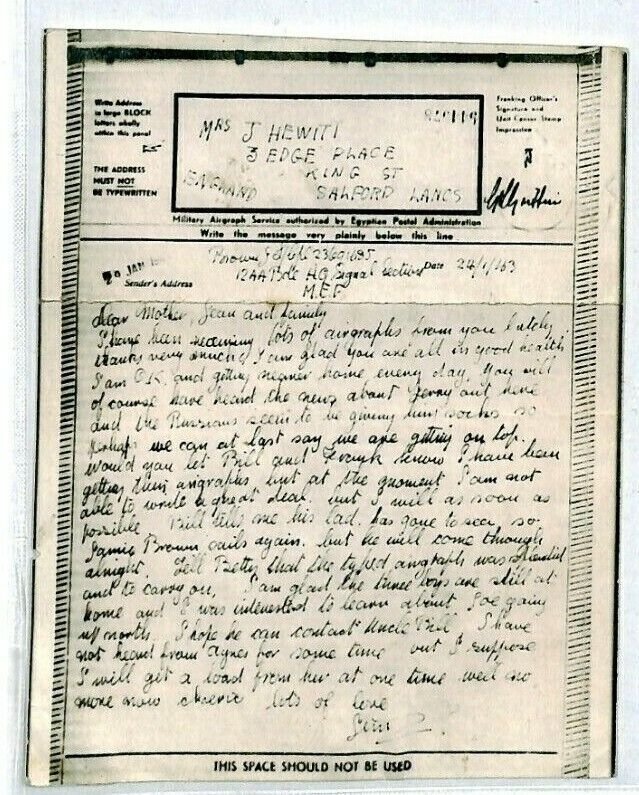 Write Address
in large BLOCK
letters wholly
within this panel
THE ADDRESS
MUST NOT
BE TYPEWRITTEN
MRS J HEWITT
3 EDGE PLACE
KING ST
ENGLAND SALFORD LANCS
Franking Officer's
Signature and
Unit Censor Stamp
Impression
Military Airgraph Service authorized by Egyptian Postal Administration
Write the message very plainly below this line
JAN
Sender's Address
Brown
12AA Bde H.Q. Signal Section
M.E.F
Date 24/1/43
Dear Mother, Jean and family
I have been receiving lots of airgraphs from you lately
thanks very much, I am glad you are all in good health
I am O.K. and getting nearer home every day. You will
of course have heard the news about Jerry out here
and the Russians seem to be giving him socks so
perhaps we can at last say we are getting on top.
Would you let Bill and Frank know I have been
getting their airgraphs but at the moment I am not
able to write a great deal. but I will as soon as
possible. Bill tells me his lad. has gone to sea, so.
Jamie Brown sails again. but he will come through
alright. Tell Betty that the typed airgraph was splendid
and to carry on. I am glad the three boys are still at
home and I was interested to learn about Joe going
up north. I hope he can contact Uncle Bill. I have
not heard from Agnes for some time but I suppose
I will get a load from her at one time well no
more now cheerio lots of love
THIS SPACE SHOULD NOT BE USED